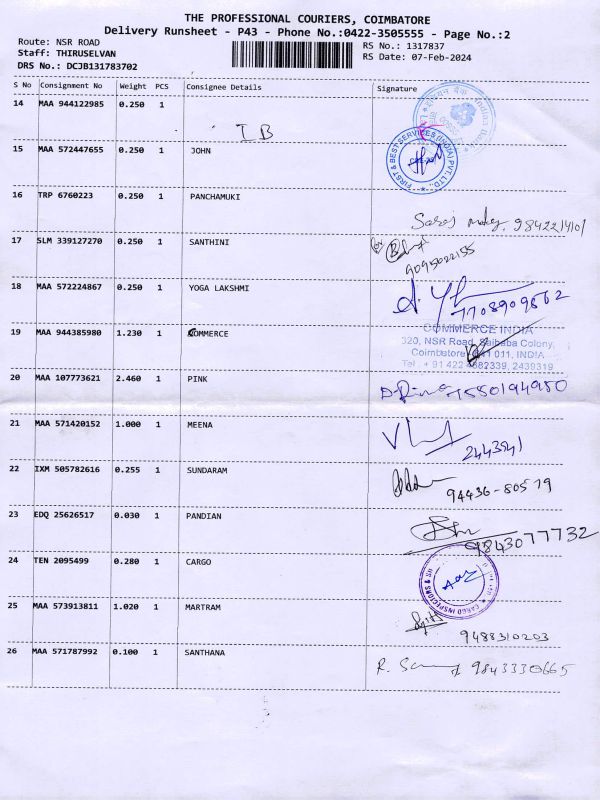 THE PROFESSIONAL COURIERS, COIMBATORE
Delivery Runsheet - P43 - Phone No.:0422-3505555 - Page No.:2
Route: NSR ROAD
Staff: THIRUSELVAN
DRS No.: DCJB131783702
RS No.: 1317837
RS Date: 07-Feb-2024
S No Consignment No Weight PCS Consignee Details Signature
14 MAA 944122985 0.250 1
I B
15 MAA 572447655 0.250 1 JOHN
FIRST & BEST SERVICES (INDIA) PVT. LTD.
16 TRP 6760223 0.250 1 PANCHAMUKI
17 SLM 339127270 0.250 1 SANTHINI
9095022155
18 MAA 572224867 0.250 1 YOGA LAKSHMI
7708909862
19 MAA 944385980 1.230 1 COMMERCE
COMMERCE INDIA
320, NSR Road, Saibaba Colony,
Coimbatore - 641 011, INDIA
Tel : +91 422 4382339, 2439319
20 MAA 107773621 2.460 1 PINK
7550194950
21 MAA 571420152 1.000 1 MEENA
22 IXM 505782616 0.255 1 SUNDARAM
94436-80579
23 EDQ 25626517 0.030 1 PANDIAN
9843077732
24 TEN 2095499 0.280 1 CARGO
CARGO INSPECTORS &
25 MAA 573913811 1.020 1 MARTRAM
9488310203
26 MAA 571787992 0.100 1 SANTHANA
9843330665